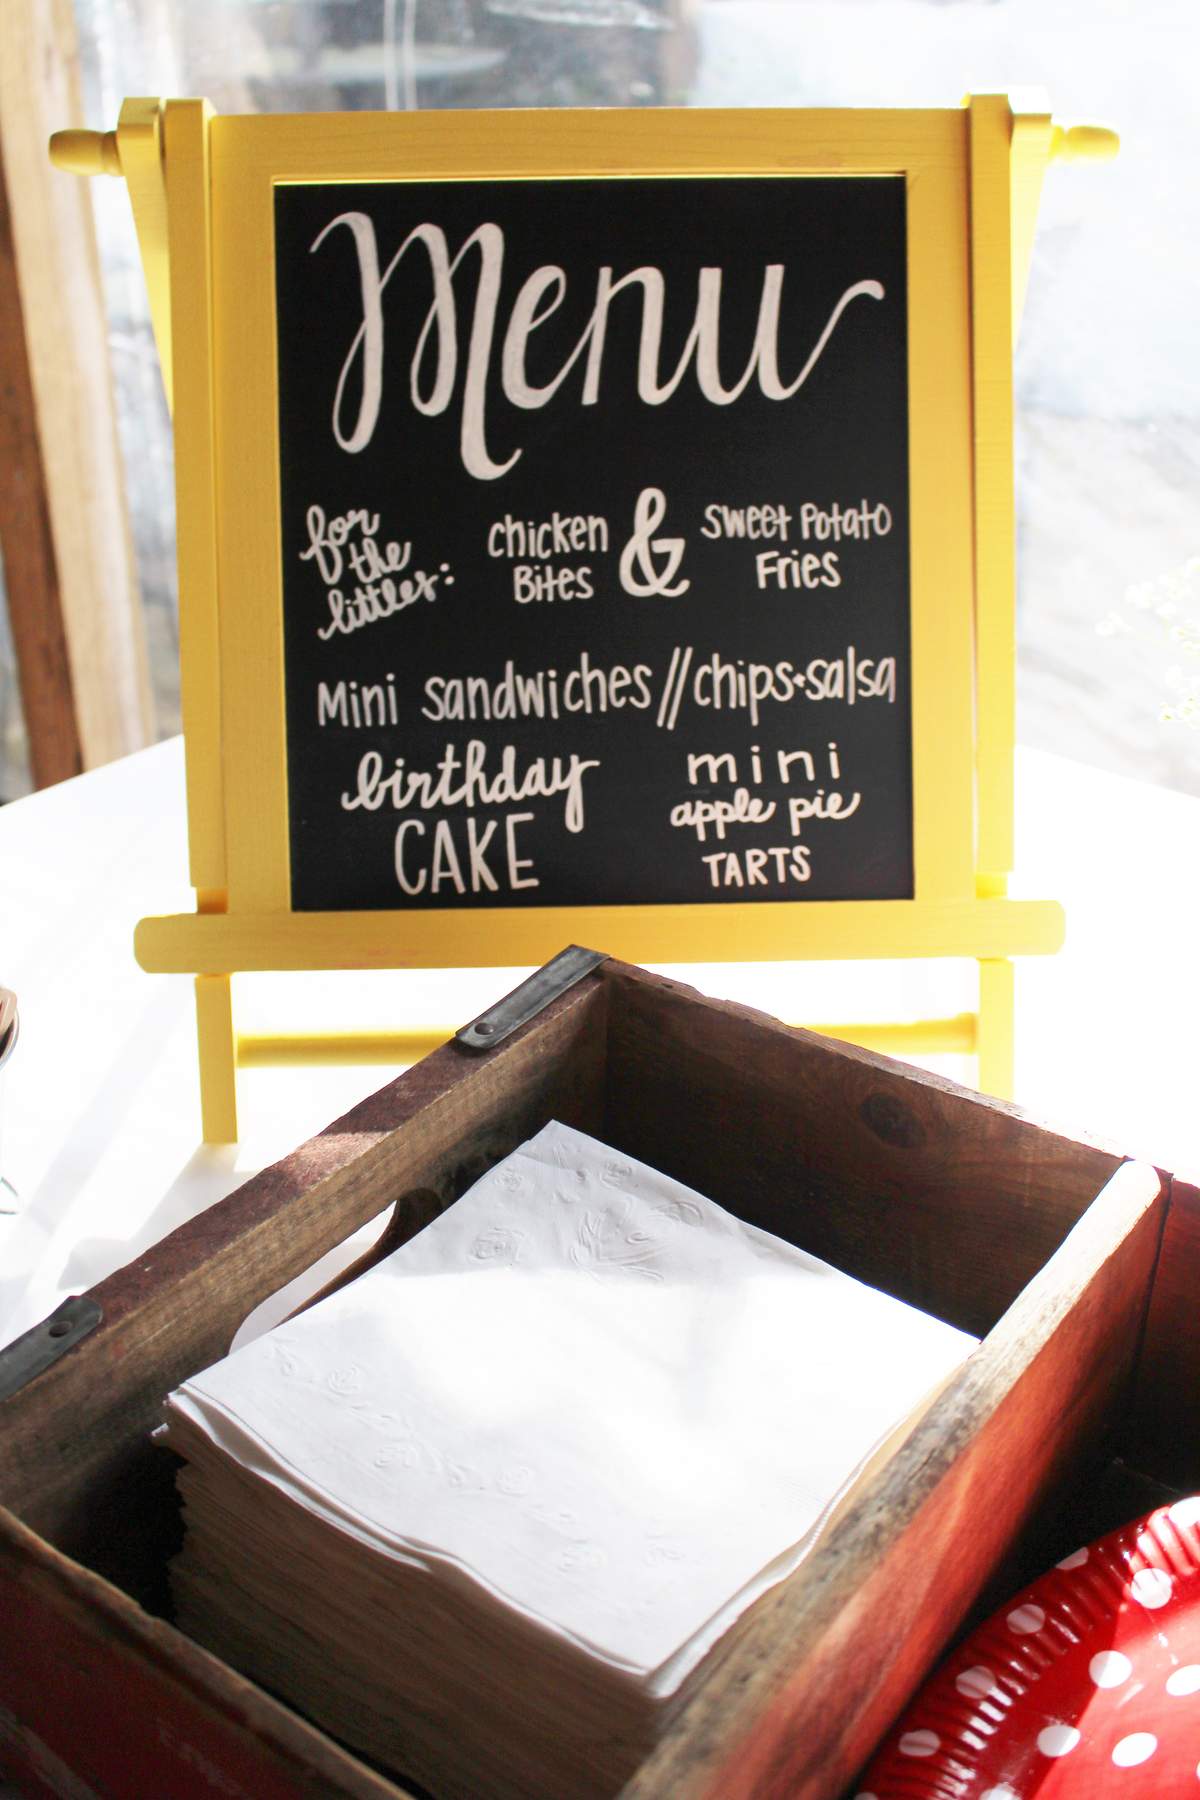 Menu
for the littles: chicken Bites & Sweet Potato Fries
Mini sandwiches // chips + salsa
birthday CAKE
mini apple pie TARTS